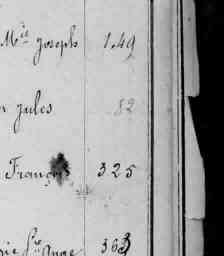 Mie joseph 149
jules 82
François 325
Ste Ange 363